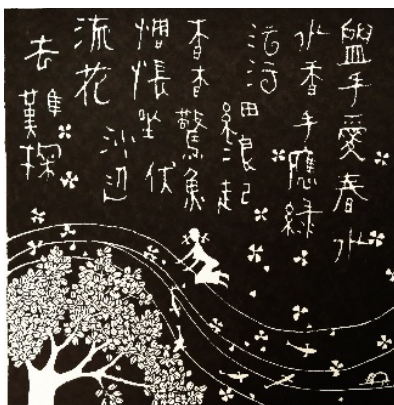 盥手愛春水
水香手應緑
沄沄細浪起
杳杳驚魚伏
惆悵坐沙辺
流花去難